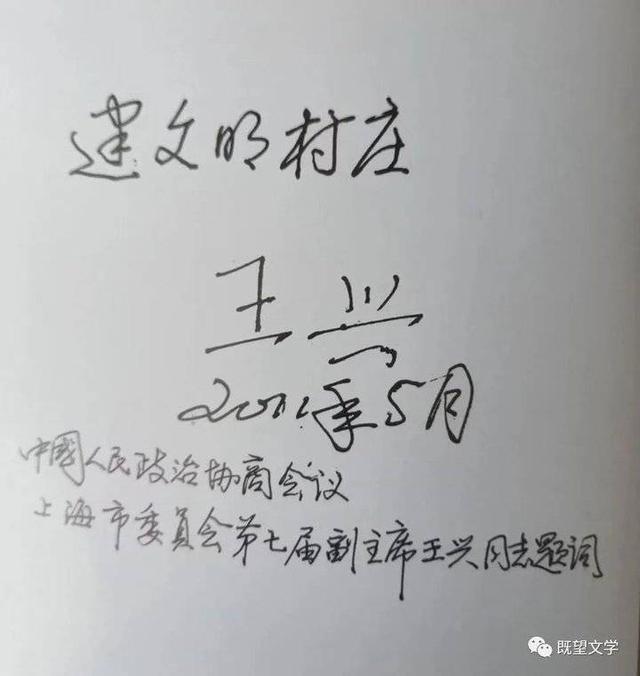 建文明村庄
王兴
2011年5月
中國人民政治协商会议
上海市委员会第七届副主席王兴同志题词
既望文学